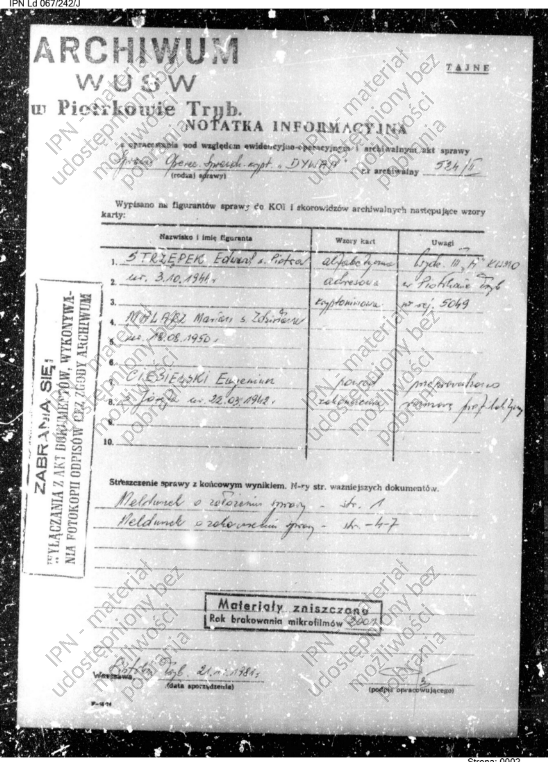 IPN Ld 067/242/J
ARCHIWUM
WUSW
w Piotrkowie Tryb.
TAJNE
NOTATKA INFORMACYJNA
z opracowania pod względem ewidencyjno-operacyjnym i archiwalnym akt sprawy
krypt. „DYWAN" nr archiwalny 524/II
(rodzaj sprawy)
Wypisano na figurantów sprawy do KOI i skorowidzów archiwalnych następujące wzory
karty:
Nazwisko i imię figuranta Wzory kart Uwagi
1. STRZĘPEK Edward s. Piotra alfabetyczna
2. ur. 3.10.1944r. adresowa w Piotrkowie Tryb
3. kryptonimowa nr rej. 5049
4. MALARZ Marian s. Zdzisława
5. ur. 18.08.1950r.
6.
7. CIESIELSKI Eugeniusz powód przeprowadzono
8. s. Józefa ur. 22.03.1942r. zakończenia rozmowę
9.
10.
ZABRANIA SIĘ!
WYŁĄCZANIA Z AKT DOKUMENTÓW, WYKONYWA-
NIA FOTOKOPII ODPISÓW BEZ ZGODY ARCHIWUM
Streszczenie sprawy z końcowym wynikiem. N-ry str. ważniejszych dokumentów.
Meldunek o założeniu sprawy - str. 1
Meldunek o zakończeniu sprawy - str. - 4-7
Materiały zniszczono
Rok brakowania mikrofilmów 2001
Warszawa,
(data sporządzenia) (podpis opracowującego)
IPN - materiał
udostępniony bez
możliwości
pobrania
Strona: 0002